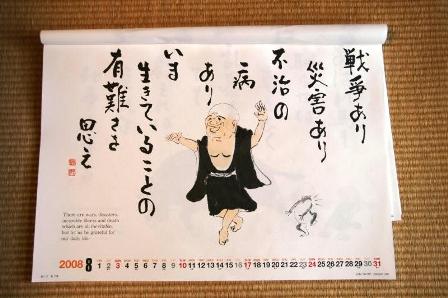 戦争あり
災害あり
不治の
病
あり
いま
生きていることの
有難さを
思え
There are wars, disasters,
incurable illness and death
which are all inevitable,
but let us be grateful for
our daily life.
2008 8 1 2 3 4 5 6 7 8 9 10 11 12 13 14 15 16 17 18 19 20 21 22 23 24 25 26 27 28 29 30 31